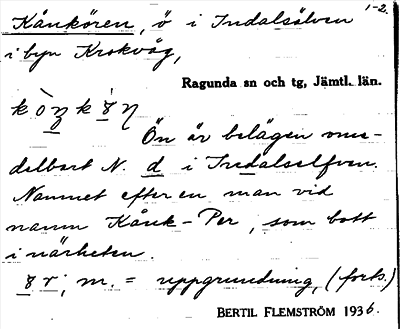 Kånkören, ö i Indalsälven 1-2.
i byn Krokvåg,
Ragunda sn och tg, Jämtl. län.
Ön är belägen ome-
delbart N. d i Indalselfven.
Namnet efter en man vid
namn Kånk-Per, som bott
i närheten.
m. = uppgrundning, (forts.)
BERTIL FLEMSTRÖM 1936.